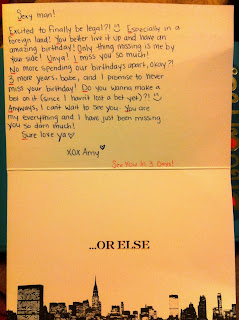 Sexy man!
Excited to finally be legal?!! Especially in a
foreign land! You better live it up and have an
amazing birthday! Only thing missing is me by
your side! Unya! I miss you so much!
No more spending our birthdays apart, okay?!
3 more years, babe, and I promise to never
miss your birthday! Do you wanna make a
bet on it (since I havn't lost a bet yet)?!
Anyways, I can't wait to see you. You are
my everything and I have just been missing
you so darn much!
Sure love ya
XOX Amy
See You In 3 Days!
...OR ELSE